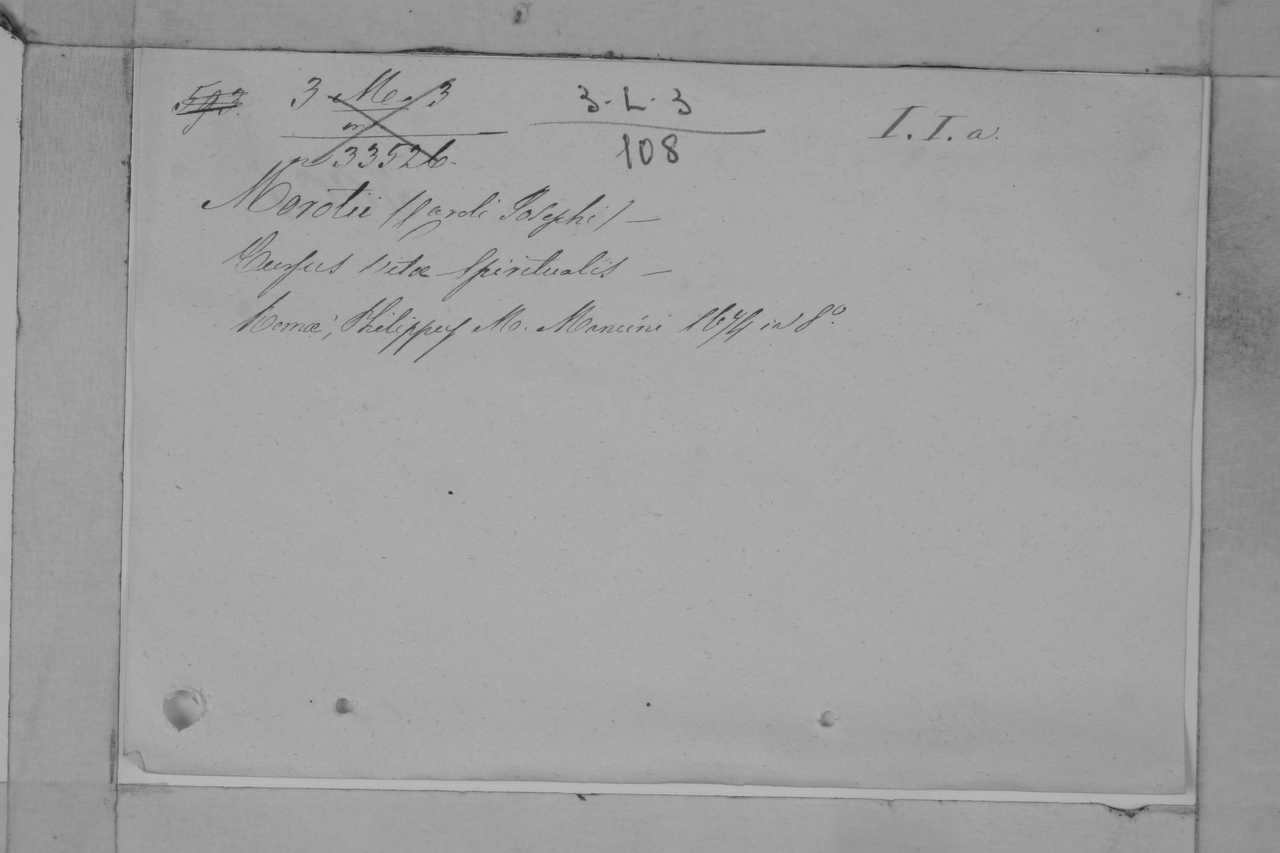 593. 3 M. 3 3. L. 3 I. I. a.
n 33526. 108
Morotii (Caroli Josephi) —
Cursus vitæ Spiritualis —
Romæ; Philippus M. Mancini 1674 in 8º.